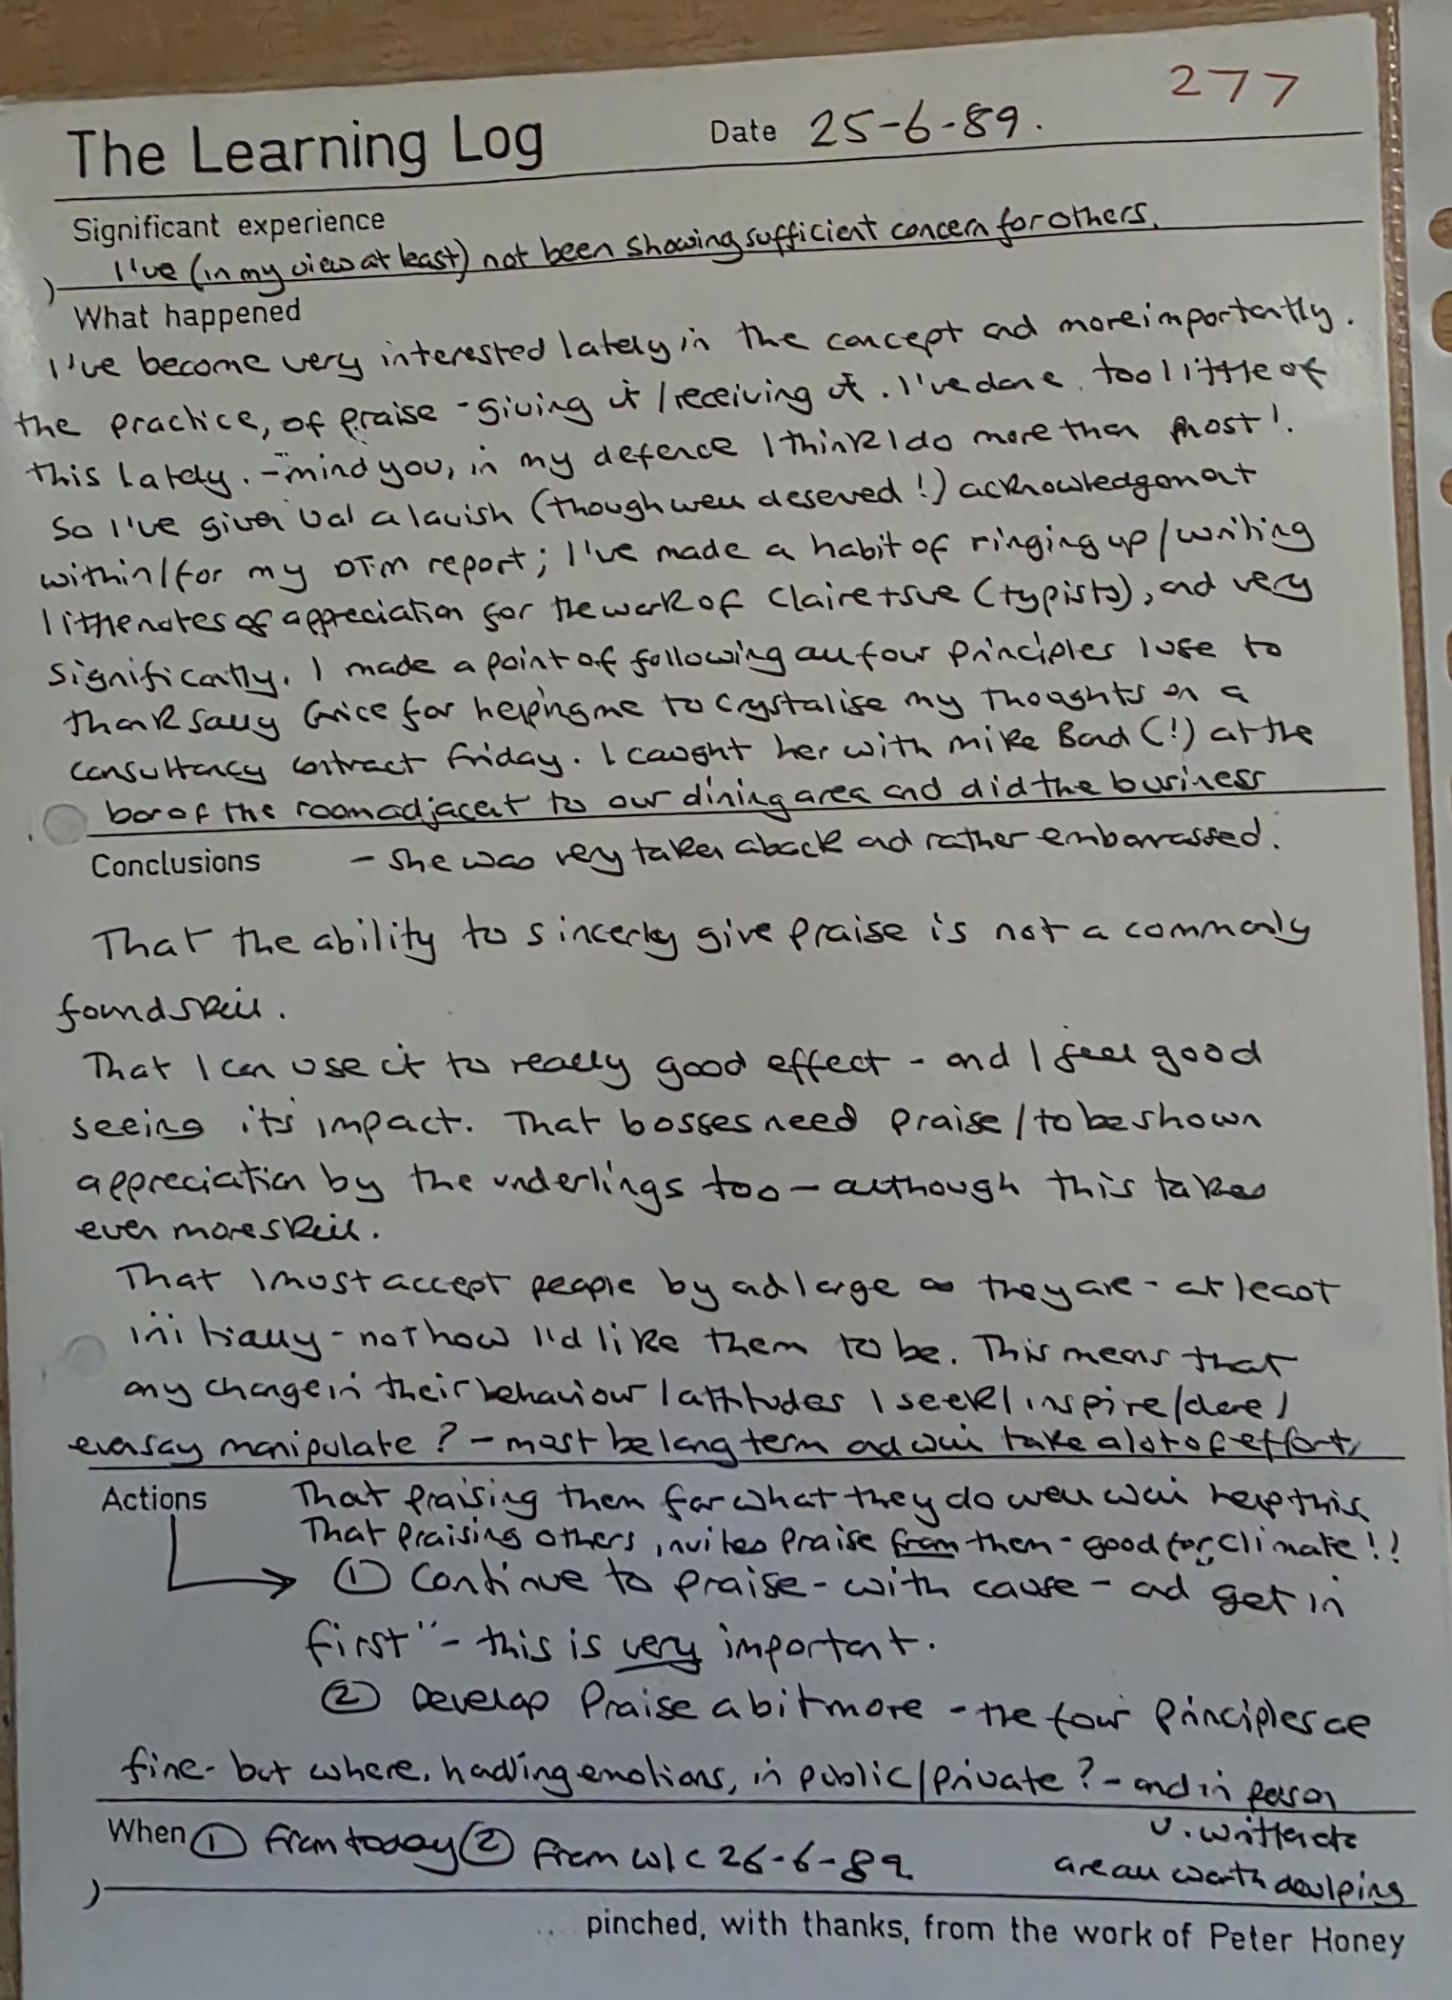 277
The Learning Log Date 25-6-89.
Significant experience
I've (in my view at least) not been showing sufficient concern for others.
What happened
I've become very interested lately in the concept and more importantly.
the practice, of praise - giving it / receiving it. I've done too little of
this lately. - mind you, in my defence I think I do more than most!.
So I've given Val a lavish (though well deserved!) acknowledgement
within/for my OTM report; I've made a habit of ringing up/writing
little notes of appreciation for the work of Claire + Sue (typists), and very
significantly. I made a point of following all four principles I use to
thank Sally Grice for helping me to crystalise my thoughts on a
consultancy contract Friday. I caught her with Mike Bond (!) at the
bar of the room adjacent to our dining area and did the business
Conclusions - she was very taken aback and rather embarrassed.
That the ability to sincerly give praise is not a commonly
found skill.
That I can use it to really good effect - and I feel good
seeing its impact. That bosses need praise / to be shown
appreciation by the underlings too - although this takes
even more skill.
That I must accept people by and large as they are - at least
initially - not how I'd like them to be. This means that
any change in their behaviour / attitudes I seek / inspire / dare I
even say manipulate? - must be long term and will take a lot of effort,
Actions That praising them for what they do well will help this
That praising others, invites praise from them - good for climate!!
① Continue to praise - with cause - and get in
first" - this is very important.
② Develop Praise a bit more - the four principles are
fine - but where, handling emotions, in public/private? - and in person
When ① From today ② From w/c 26-6-89 v. written etc
are all worth develping
pinched, with thanks, from the work of Peter Honey